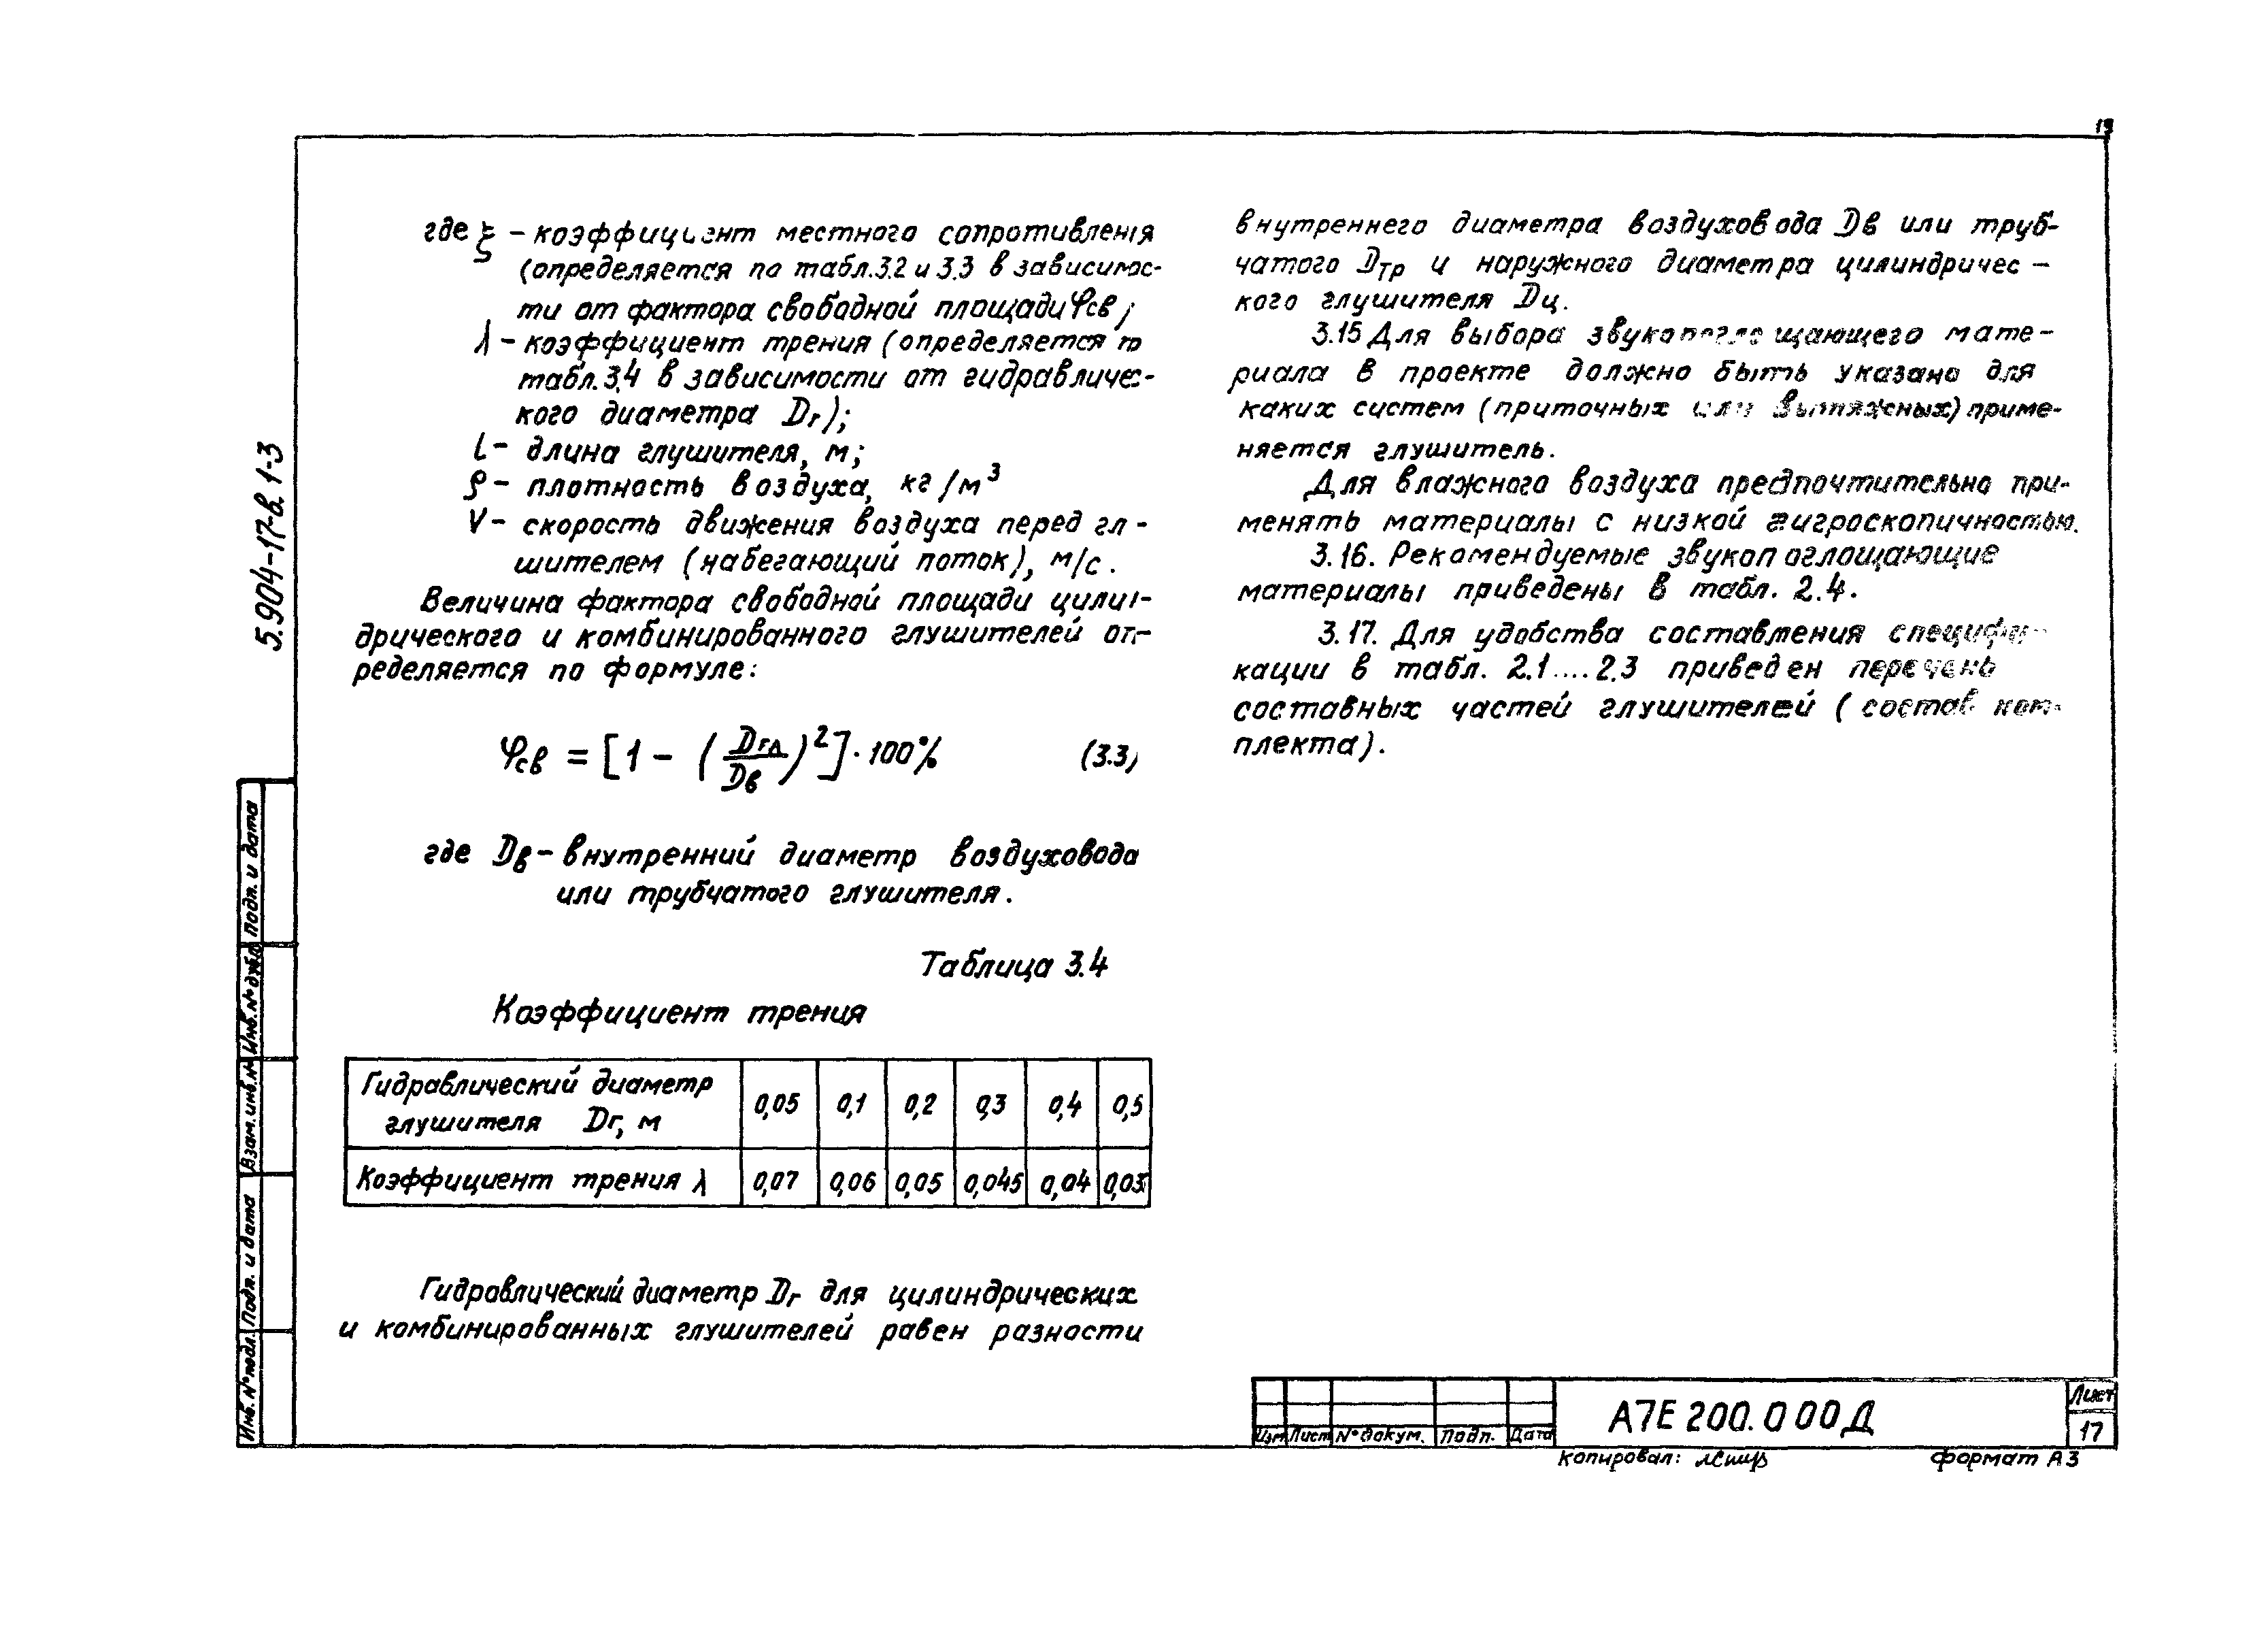 19
где ξ – коэффициент местного сопротивления
(определяется по табл.3.2 и 3.3 в зависимос-
ти от фактора свободной площади φсв;
λ – коэффициент трения (определяется по
табл.3,4 в зависимости от гидравличес-
кого диаметра Dг);
l – длина глушителя, м;
ρ – плотность воздуха, кг/м³
V – скорость движения воздуха перед гл -
шителем (набегающий поток), м/с.
Величина фактора свободной площади цилин-
дрического и комбинированного глушителей оп-
ределяется по формуле:
φсв = [1 – (Dгл/Dв)²]·100% (3.3)
где Dв – внутренний диаметр воздуховода
или трубчатого глушителя.
Таблица 3.4
Коэффициент трения
Гидравлический диаметр глушителя Dг, м 0,05 0,1 0,2 0,3 0,4 0,5
Коэффициент трения λ 0,07 0,06 0,05 0,045 0,04
Гидравлический диаметр Dг для цилиндрических
и комбинированных глушителей равен разности
внутреннего диаметра воздуховода Dв или труб-
чатого Dтр и наружного диаметра цилиндричес –
кого глушителя Dц.
3.15 Для выбора звукопоглощающего мате-
риала в проекте должно быть указано для
каких систем (приточных или вытяжных) приме-
няется глушитель.
Для влажного воздуха предпочтительно при-
менять материалы с низкой гигроскопичностью.
3.16. Рекомендуемые звукопоглощающие
материалы приведены в табл. 2.4.
3.17. Для удобства составления специфи-
кации в табл. 2.1....2.3 приведен перечень
составных частей глушителей (состав ком-
плекта).
5.904-17-в.1-3
Подп. и дата
Инв.№ дубл
Взам.инв.№
Подп. и дата
Инв. № подл.
Изм Лист № докум. Подп. Дата
А7Е 200.000Д
Лист
17
Копировал:
формат А3